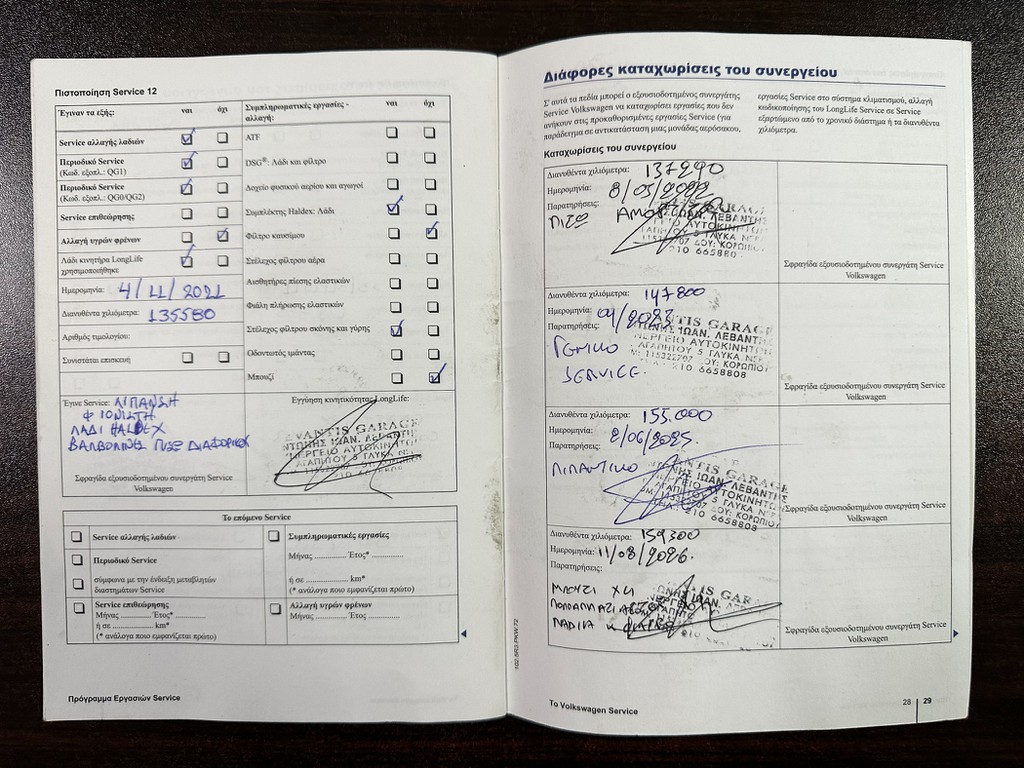 Πιστοποίηση Service 12
Έγιναν τα εξής: ναι όχι
Service αλλαγής λαδιών
Περιοδικό Service
(Κωδ. εξοπλ.: QG1)
Περιοδικό Service
(Κωδ. εξοπλ.: QG0/QG2)
Service επιθεώρησης
Αλλαγή υγρών φρένων
Λάδι κινητήρα LongLife
χρησιμοποιήθηκε
Ημερομηνία: 4/11/2021
Διανυθέντα χιλιόμετρα: 135580
Αριθμός τιμολογίου:
Συνιστάται επισκευή
Συμπληρωματικές εργασίες - ναι όχι
αλλαγή:
ATF
DSG®: Λάδι και φίλτρο
Δοχείο φυσικού αερίου και αγωγοί
Συμπλέκτης Haldex: Λάδι
Φίλτρο καυσίμου
Στέλεχος φίλτρου αέρα
Αισθητήρες πίεσης ελαστικών
Φιάλη πλήρωσης ελαστικών
Στέλεχος φίλτρου σκόνης και γύρης
Οδοντωτός ιμάντας
Μπουζί
Έγινε Service: ΛΙΠΑΝΣΗ
ΛΑΔΙ HALDEX
ΒΑΛΒΟΛΙΝΗ ΠΙΣΩ ΔΙΑΦΟΡΙΚΟΥ
Σφραγίδα εξουσιοδοτημένου συνεργάτη Service
Volkswagen
Εγγύηση κινητικότητας LongLife:
VANTIS GARAGE
ΝΤΩΝΗΣ ΙΩΑΝ. ΛΕΒΑΝΤΗ
ΝΕΡΓΕΙΟ ΑΥΤΟΚΙΝΗΤ
ΑΓΑΠΗΤΟΥ 5 ΓΛΥΚΑ ΝΕ
Το επόμενο Service
Service αλλαγής λαδιών
Περιοδικό Service
σύμφωνα με την ένδειξη μεταβλητών
διαστημάτων Service
Συμπληρωματικές εργασίες
Μήνας .............. Έτος* ..............
ή σε ........................ km*
(* ανάλογα ποιο εμφανίζεται πρώτο)
Service επιθεώρησης
Μήνας .............. Έτος* ..............
ή σε ........................ km*
(* ανάλογα ποιο εμφανίζεται πρώτο)
Αλλαγή υγρών φρένων
Μήνας .............. Έτος ..............
Πρόγραμμα Εργασιών Service
102.5R3.PKW.72
Διάφορες καταχωρίσεις του συνεργείου
Σ' αυτά τα πεδία μπορεί ο εξουσιοδοτημένος συνεργάτης
Service Volkswagen να καταχωρίσει εργασίες που δεν
ανήκουν στις προκαθορισμένες εργασίες Service (για
παράδειγμα σε αντικατάσταση μιας μονάδας αερόσακου,
εργασίες Service στο σύστημα κλιματισμού, αλλαγή
κωδικοποίησης του LongLife Service σε Service
εξαρτώμενο από το χρονικό διάστημα ή τα διανυθέντα
χιλιόμετρα.
Καταχωρίσεις του συνεργείου
Διανυθέντα χιλιόμετρα: 137290
Ημερομηνία: 8/05/2022
Παρατηρήσεις:
ΠΙΣΩ ΑΜΟΡ
ΙΩΑΝ. ΛΕΒΑΝΤΗΣ
ΑΥΤΟΚΙΝΗΤΩΝ
210 665880
Σφραγίδα εξουσιοδοτημένου συνεργάτη Service
Volkswagen
Διανυθέντα χιλιόμετρα: 147800
Ημερομηνία: 04/2023
Παρατηρήσεις:
ΓΕΝΙΚΟ
SERVICE.
NTIS GARAGE
ΤΩΝΗΣ ΙΩΑΝ. ΛΕΒΑΝΤΗ
ΝΕΡΓΕΙΟ ΑΥΤΟΚΙΝΗΤΩΝ
ΑΓΑΠΗΤΟΥ 5 ΓΛΥΚΑ ΝΕΡΑ
115322707 ΔΟΥ: ΚΟΡΩΠΙΟΥ
210 6658808
Σφραγίδα εξουσιοδοτημένου συνεργάτη Service
Volkswagen
Διανυθέντα χιλιόμετρα: 155.000
Ημερομηνία: 2/06/2025.
Παρατηρήσεις:
ΛΙΠΑΝΤΙΚΟ
NTIS GARAGE
ΩΝΗΣ ΙΩΑΝ. ΛΕΒΑΝΤΗΣ
ΑΥΤΟΚΙΝΗΤΩΝ
ΔΟΥ: ΚΟΡΩΠΙΟΥ
210 6658808
Σφραγίδα εξουσιοδοτημένου συνεργάτη Service
Volkswagen
Διανυθέντα χιλιόμετρα: 159300
Ημερομηνία: 11/08/2026.
Παρατηρήσεις:
ΜΠΟΥΖΙ
ΠΟΛΛΑΠΛΑΣΙΑΣΤΕΣ
ΛΑΔΙΑ Κ ΦΙΛΤΡΟ
Σφραγίδα εξουσιοδοτημένου συνεργάτη Service
Volkswagen
Το Volkswagen Service
28 | 29